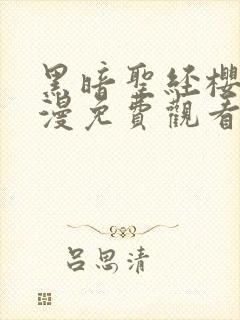 黑暗聖経櫻
漫免費觀看
呂思清